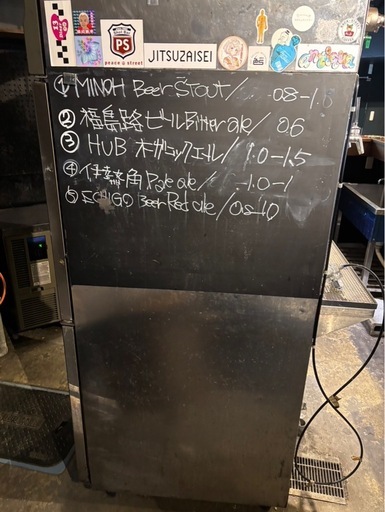 PS
peace & street
JITSUZAISEI
① MINOH Beer Stout/ 0.8-1.5
② 福島路ビール Bitter ale/ 0.6
③ HUB オーガニックエール/ 1.0-1.5
④ 伊勢角 Pale ale/ -1.0-1
⑤ ECHIGO Beer Red ale/ 0.8-1.0